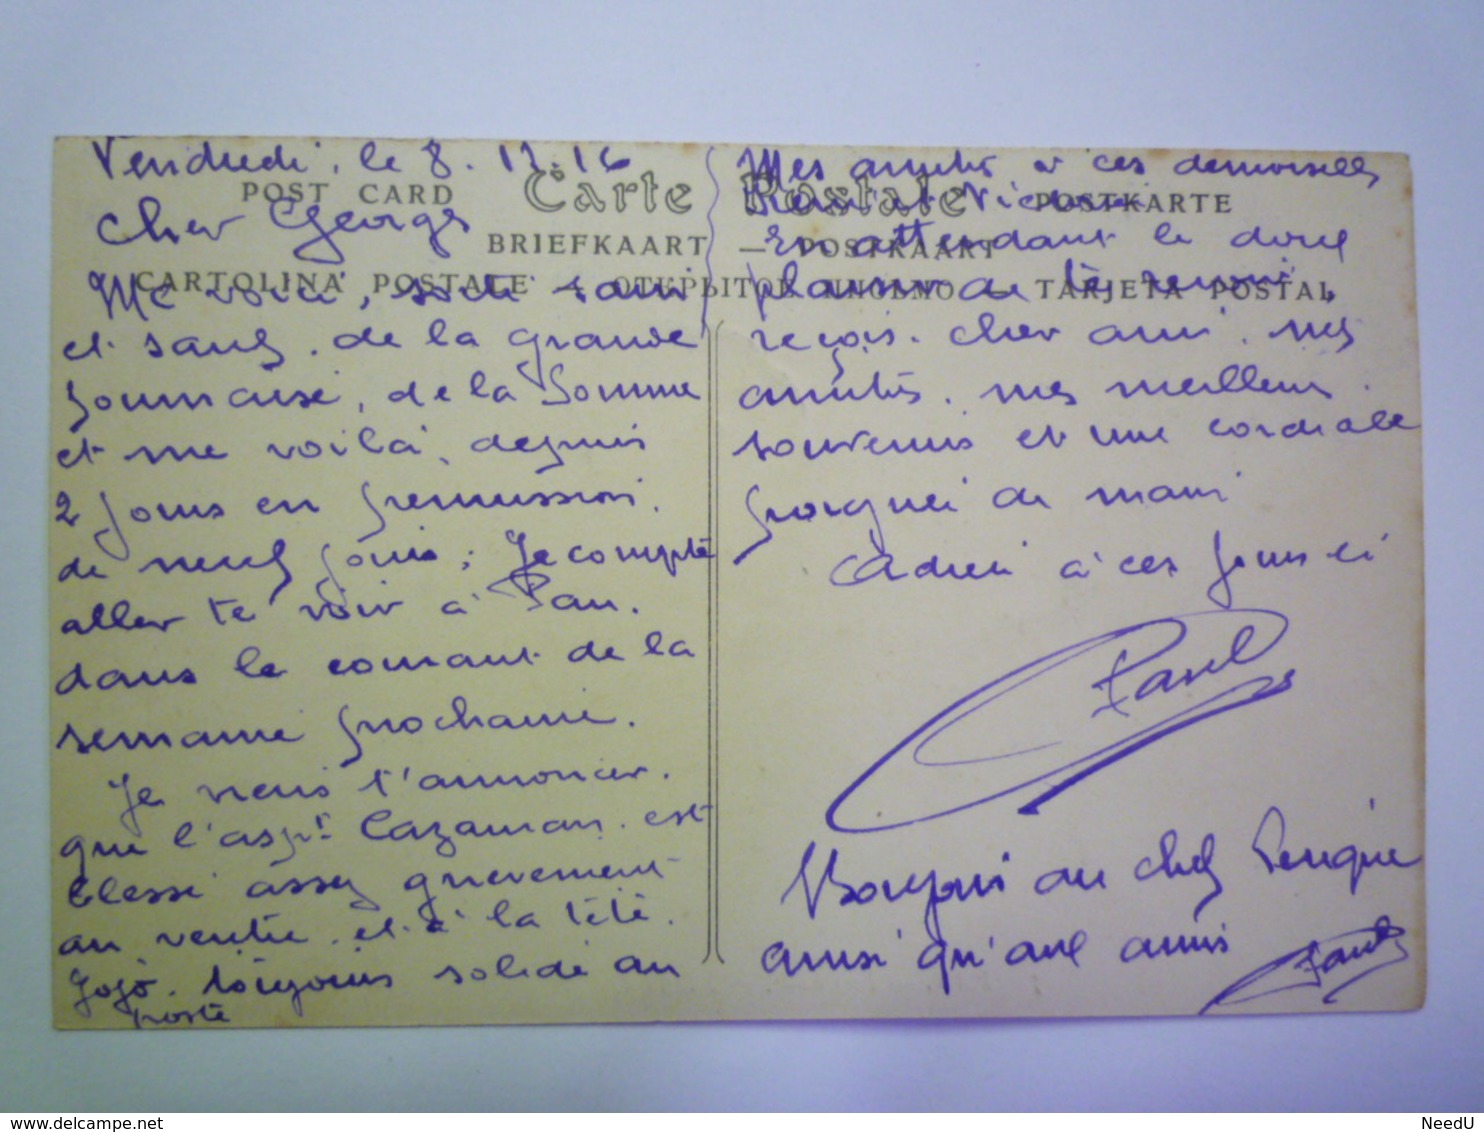 Vendredi, le 8.12.16
POST CARD Carte Postale POSTKARTE
BRIEFKAART — POSTKAART
CARTOLINA POSTALE — ОТКРЫТОЕ ПИСЬМО — TARJETA POSTAL
Cher Georges
Me voici, sorti sain
et sauf. de la grande
fournaise, de la Somme
et me voilà, depuis
2 jours en permission
de neuf jours; Je compte
aller te voir à Pau.
dans le courant de la
semaine prochaine.
Je viens t'annoncer.
que l'aspt Cazaman. est
blessé assez grievement
au ventre et à la tête.
Jojo. toujours solide au
poste
Mes amitiés à ces demoiselles
et Victoire
En attendant le doux
plaisir de te revoir,
reçois. cher ami. mes
amitiés. mes meilleurs
souvenirs et une cordiale
poignée de main
Adieu à ces jours ci
Paul
Bonjour au chef
ainsi qu'aux amis
Paul
NeedU